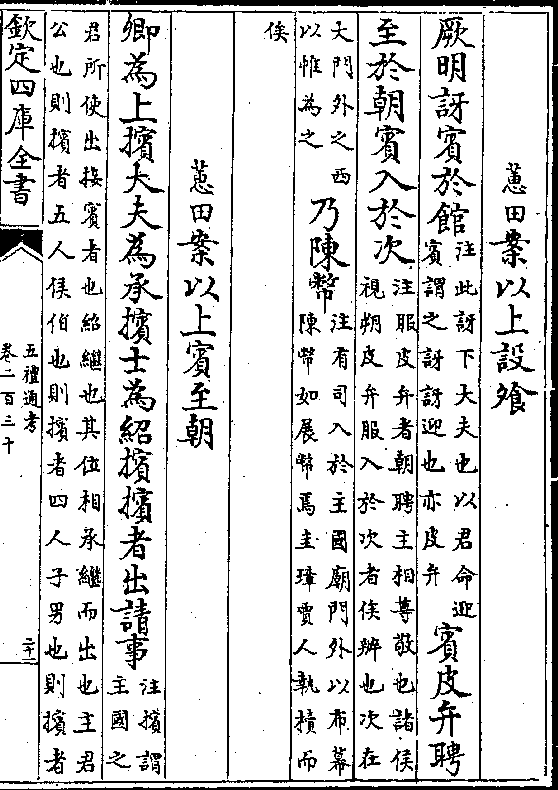 蕙田案以上設飧
厥明訝賓於館注此訝下大夫也以君命迎賓謂之訝訝迎也亦皮弁賓皮弁聘
至於朝賓入於次注服皮弁者朝聘主相尊敬也諸侯視朔皮弁服入於次者俟辦也次在
大門外之西以帷為之乃陳幣注有司入於主國廟門外以布幕陳幣如展幣焉圭璋賈人執櫝而
俟
蕙田案以上賓至朝
卿為上擯大夫為承擯士為紹擯擯者出請事注擯謂主國之
君所使出接賓者也紹繼也其位相承繼而出也主君公也則擯者五人侯伯也則擯者四人子男也則擯者
欽定四庫全書
五禮通考
卷二百三十
二十二